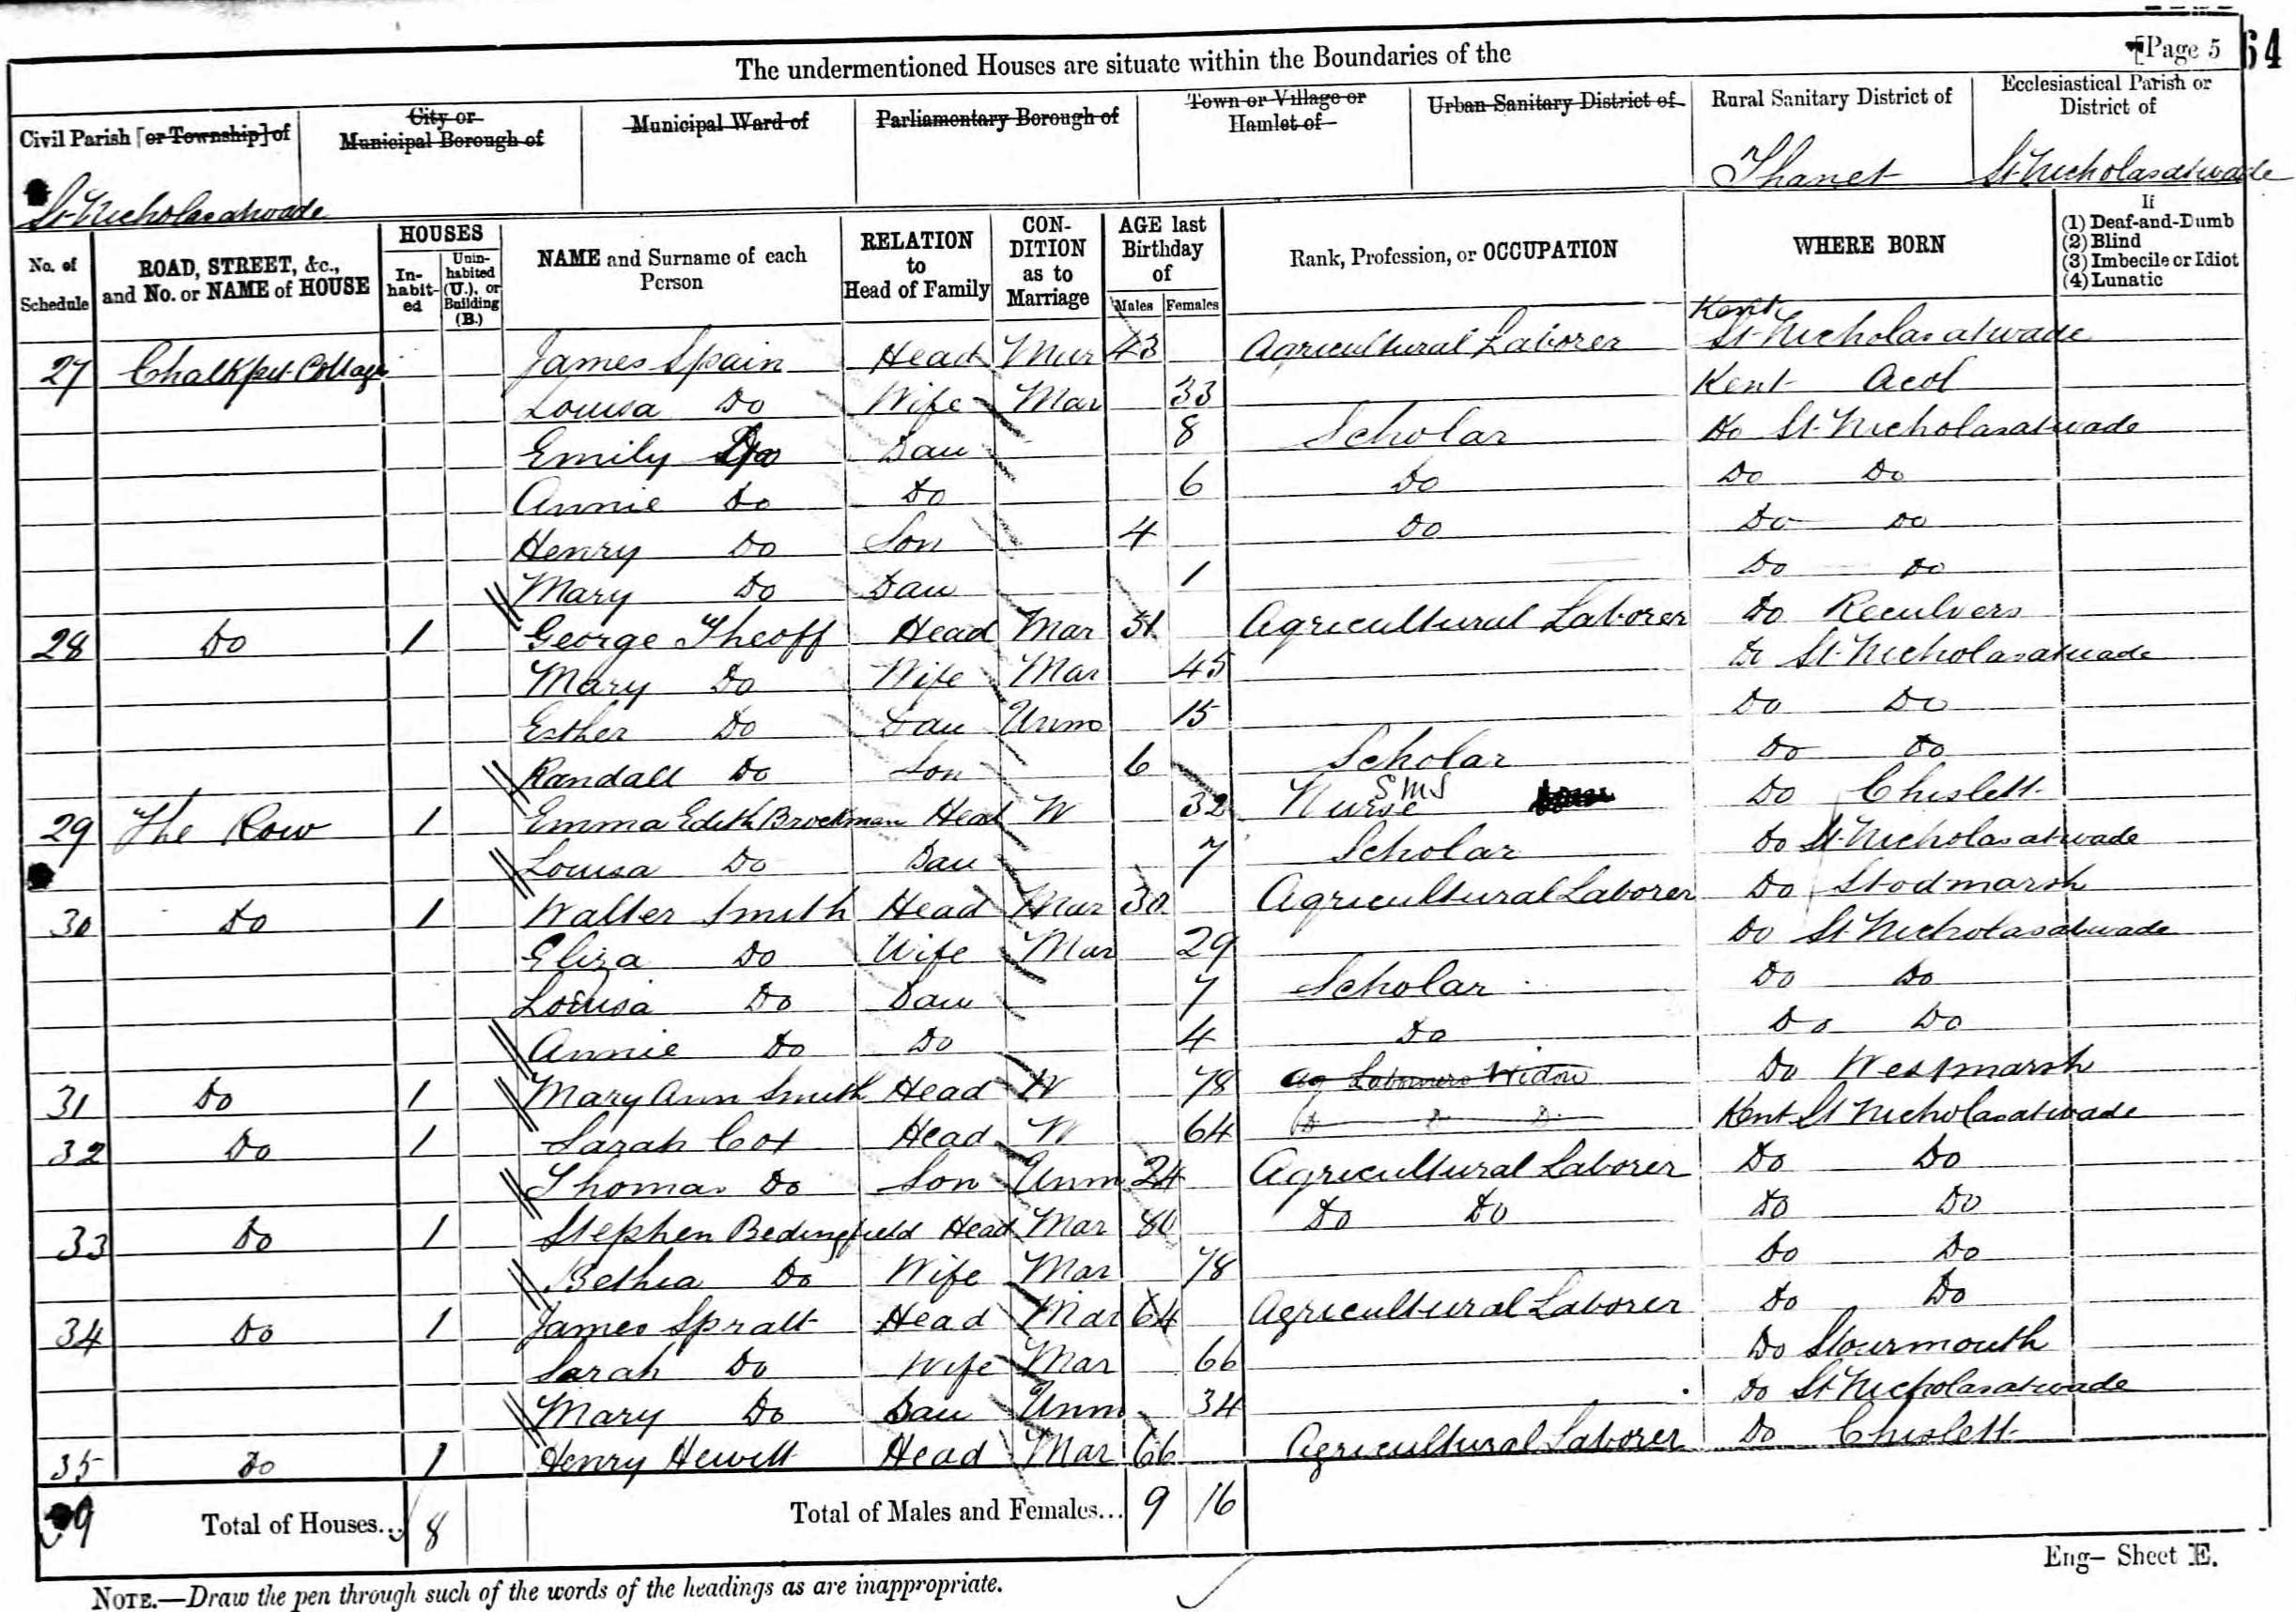 [Page 5
64
The undermentioned Houses are situate within the Boundaries of the
Civil Parish [or Township] of
City or Municipal Borough of
Municipal Ward of
Parliamentary Borough of
Town or Village or Hamlet of
Urban Sanitary District of
Rural Sanitary District of
Ecclesiastical Parish or District of
St Nicholasatwade Thanet St Nicholasatwade
No. of Schedule
ROAD, STREET, &c., and No. or NAME of HOUSE
HOUSES
In-habit-ed
Unin-habited (U.), or Building (B.)
NAME and Surname of each Person
RELATION to Head of Family
CON-DITION as to Marriage
AGE last Birthday of
Males Females
Rank, Profession, or OCCUPATION
WHERE BORN
If
(1) Deaf-and-Dumb
(2) Blind
(3) Imbecile or Idiot
(4) Lunatic
27 Chalkpit Cottage James Spain Head Mar 43 Agricultural Laborer Kent St Nicholasatwade
Louisa Do Wife Mar 33 Kent Acol
Emily Do Dau 8 Scholar Do St Nicholasatwade
Annie Do Do 6 Do Do Do
Henry Do Son 4 Do Do Do
Mary Do Dau 1 Do Do
28 Do 1 George Theoff Head Mar 51 Agricultural Laborer Do Reculvers
Mary Do Wife Mar 45 Do St Nicholasatwade
Esther Do Dau Unm 15 Do Do
Randall Do Son 6 Scholar Do Do
29 The Row 1 Emma Edith Brockman Head W 32 Nurse SMS Do Chislett
Louisa Do Dau 7 Scholar Do St Nicholasatwade
30 Do 1 Walter Smith Head Mar 30 Agricultural Laborer Do Stodmarsh
Eliza Do Wife Mar 29 Do St Nicholasatwade
Louisa Do Dau 7 Scholar Do Do
Annie Do Do 4 Do Do Do
31 Do 1 Mary Ann Smith Head W 78 Ag Laborers Widow Do Westmarsh
32 Do 1 Sarah Cox Head W 64 D D D Kent St Nicholasatwade
Thomas Do Son Unm 24 Agricultural Laborer Do Do
33 Do 1 Stephen Bedingfield Head Mar 80 Do Do Do Do
Bethia Do Wife Mar 78 Do Do
34 Do 1 James Spratt Head Mar 64 Agricultural Laborer Do Do
Sarah Do Wife Mar 66 Do Stourmouth
Mary Do Dau Unm 34 Do St Nicholasatwade
35 Do 1 Henry Hewitt Head Mar 66 Agricultural Laborer Do Chislett
39 Total of Houses... 8 Total of Males and Females... 9 16
Eng- Sheet E.
NOTE.—Draw the pen through such of the words of the headings as are inappropriate.